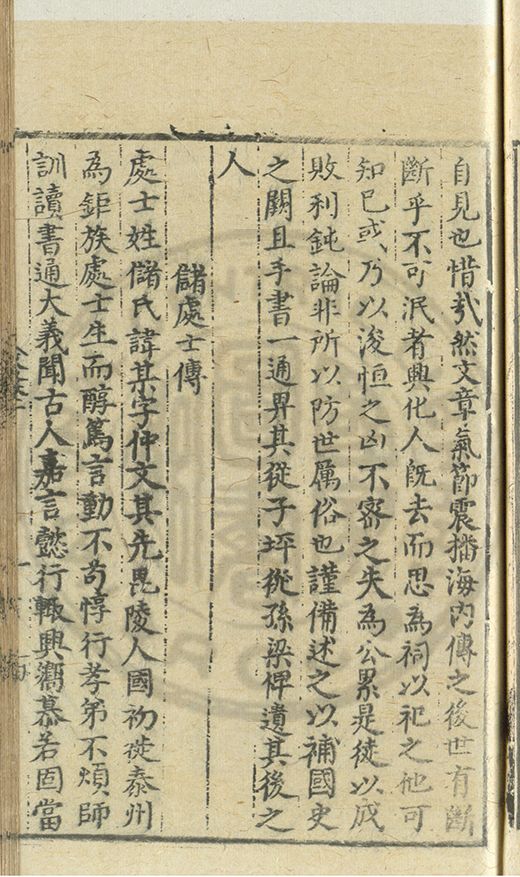 自見也惜哉然文章氣節震播海內傳之後世有斷
斷乎不可泯者興化人旣去而思為祠以祀之他可
知巳或乃以浚恒之凶不密之失為公累是徒以成
敗利鈍論非所以防世厲俗也謹備述之以補國史
之闕且手書一通畀其從子坪從孫梁俾遺其後之
人
儲處士傳
處士姓儲氏諱某字仲文其先毘陵人國初徙泰州
為鉅族處士生而醇篤言動不苟惇行孝弟不煩師
訓讀書通大義聞古人嘉言懿行輙興嚮慕若固當